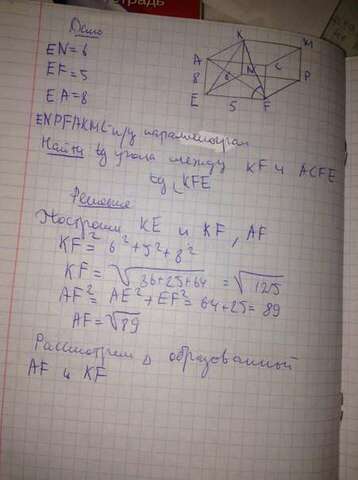 тетрадь
Дано
EN = 6
EF = 5
EA = 8
K
M
A
N
C
P
8
6
E
5
F
ENPFAKML - п/у параллелограм
Найти tg угла между KF и ACFE
tg ∠KFE
Решение
Построим KE и KF, AF
KF² = 6² + 5² + 8²
KF = √36+25+64 = √125
AF² = AE² + EF² = 64+25 = 89
AF = √89
Рассмотрим Δ образованный
AF и KF